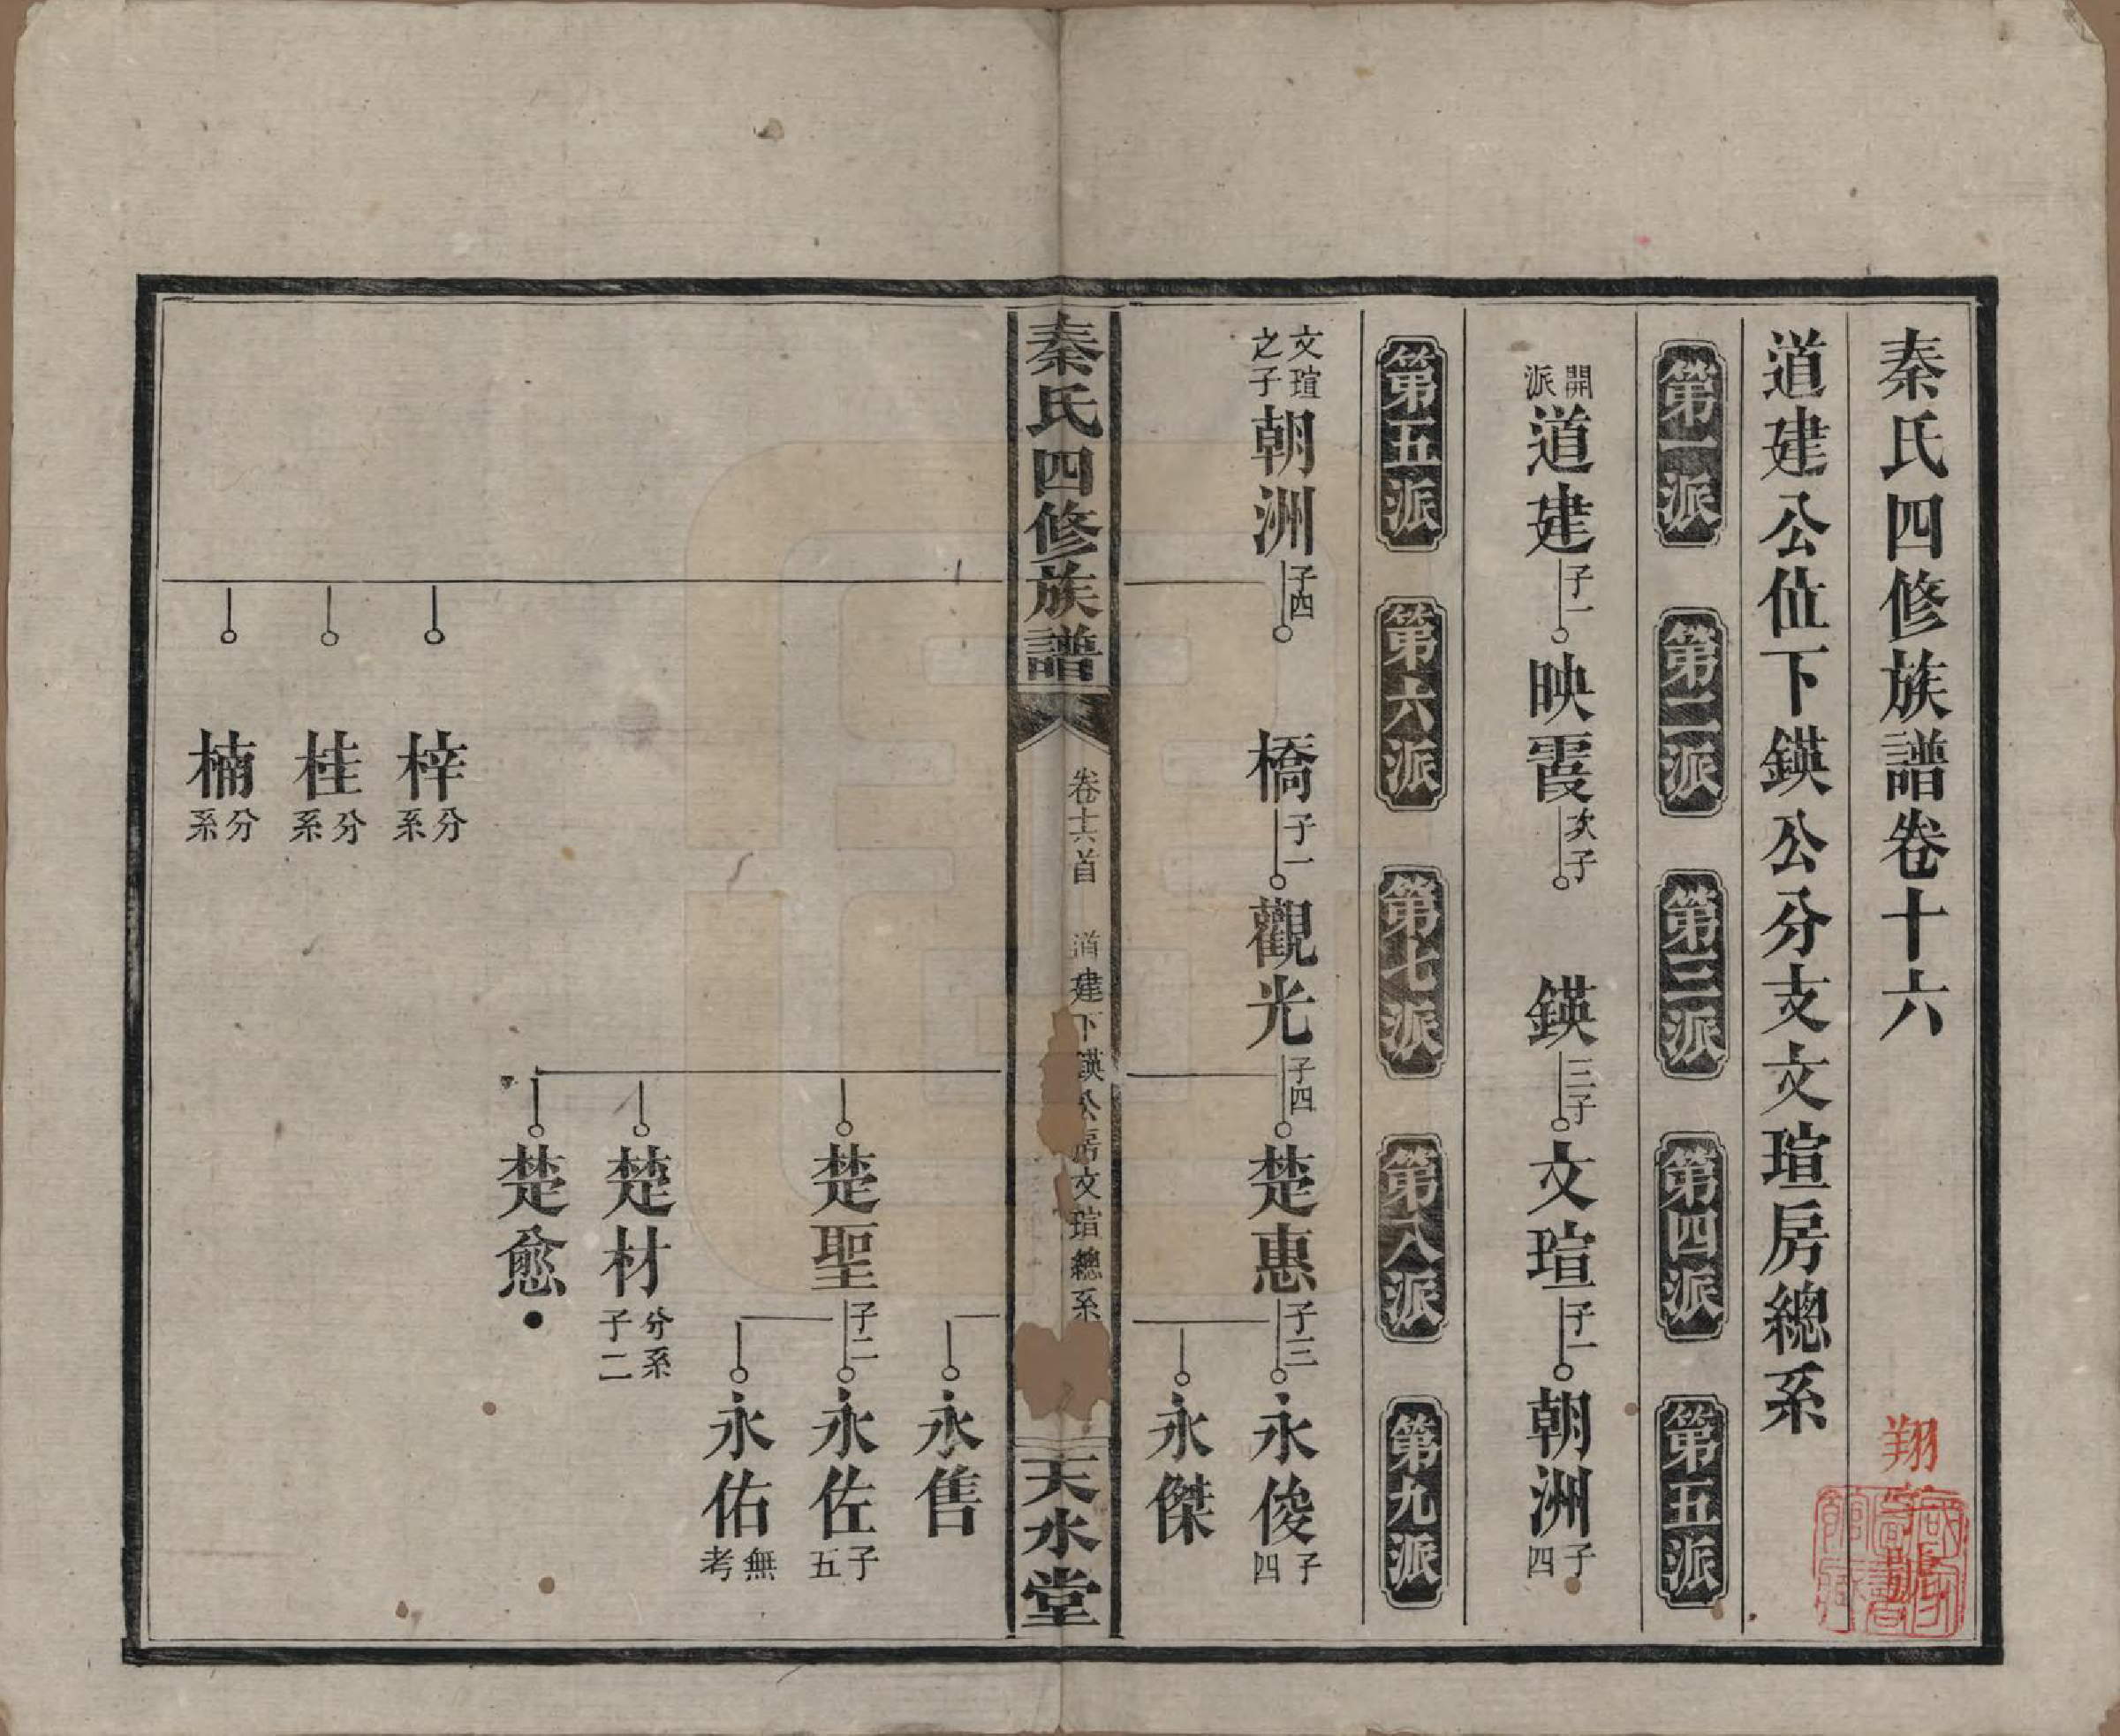 秦氏四修族譜卷十六
道建公位下鍈公分支文瑄房總系
第一派 第二派 第三派 第四派 第五派
開派道建 子一 映霞 次子 鍈 三子 文瑄 子一 朝洲 子四
第五派 第六派 第七派 第八派 第九派
文瑄之子朝洲 子四 橋 子一 觀光 子四 楚惠 子三 永俊 子四
永傑
秦氏四修族譜 卷十六首 道建下鍈公房文瑄總系 天水堂
永售
楚聖 子二 永佐 子五
永佑 無考
楚材 分系子二
楚愈
梓 分系
桂 分系
楠 分系
翔 號